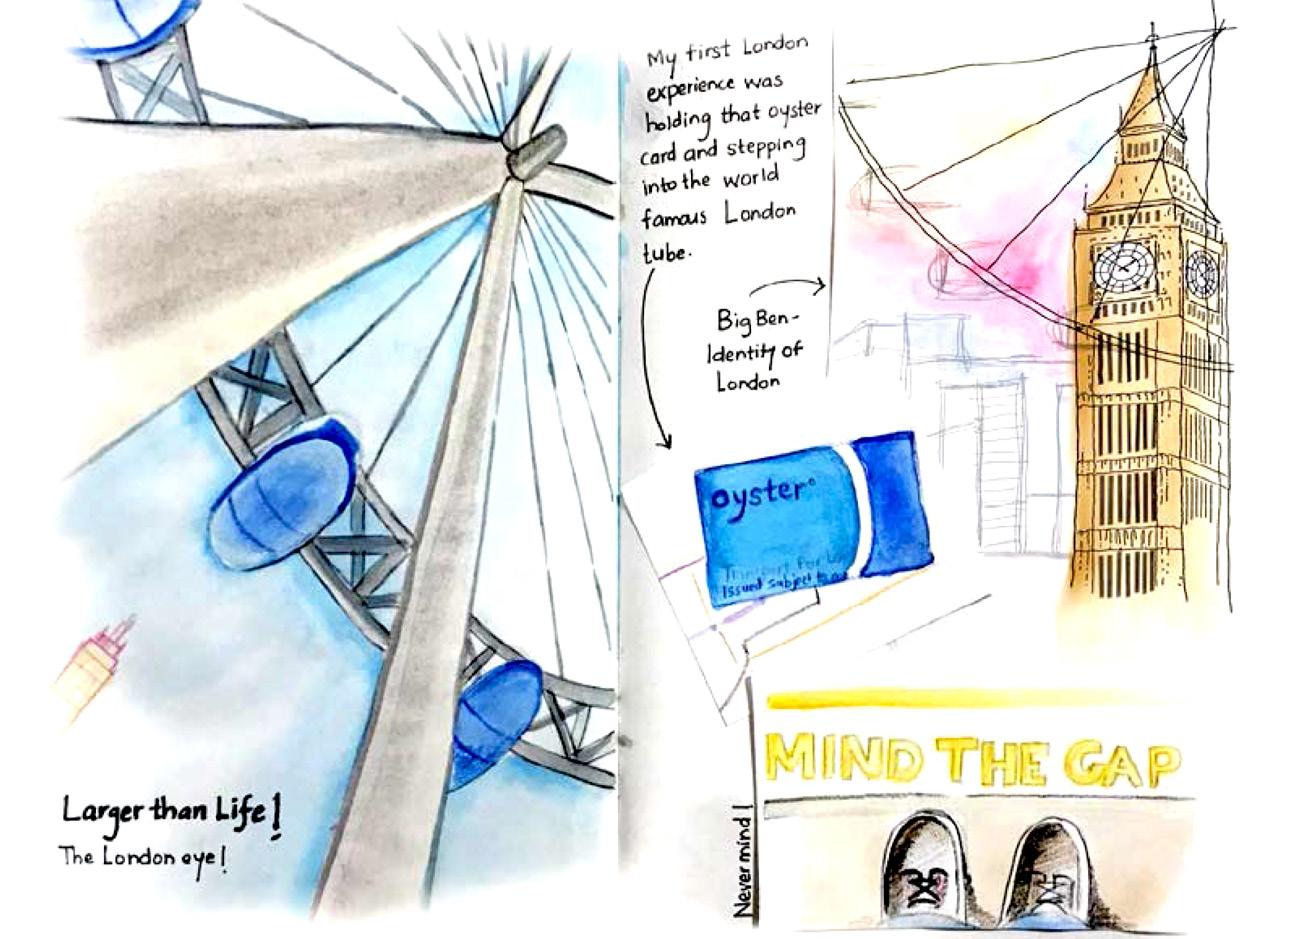 My first London
experience was
holding that oyster
card and stepping
into the world
famous London
tube.
Big Ben -
Identity of
London
oyster
Transport for
Issued subject to
MIND THE GAP
Never mind!
Larger than Life!
The London eye!